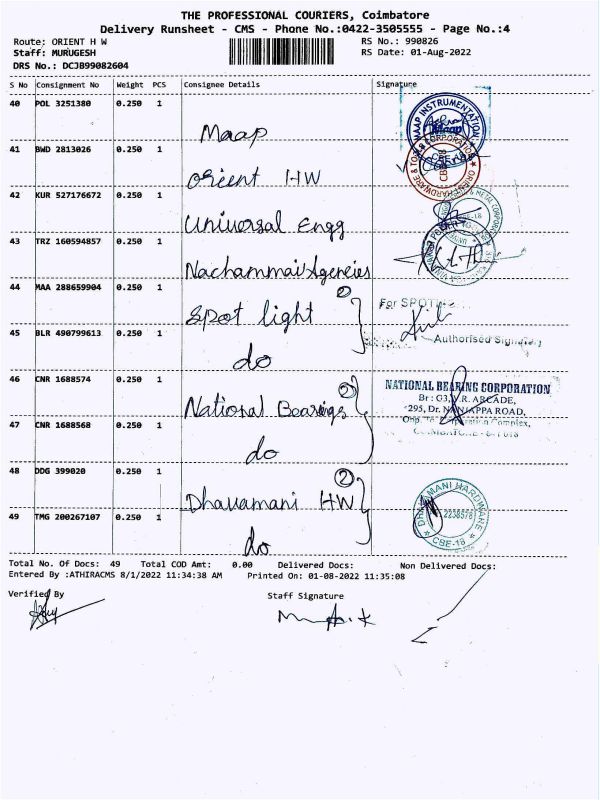 THE PROFESSIONAL COURIERS, Coimbatore
Delivery Runsheet - CMS - Phone No.:0422-3505555 - Page No.:4
Route: ORIENT H W
RS No.: 990826
Staff: MURUGESH
RS Date: 01-Aug-2022
DRS No.: DCJB99082604
S No Consignment No Weight PCS Consignee Details Signature
40 POL 3251380 0.250 1
Maap
MAAP INSTRUMENTATION
Maap
41 BWD 2813026 0.250 1
Orient HW
ORIENT HARDWARE & TOOLS CORPORATION
42 KUR 527176672 0.250 1
Universal Engg
METAL CORPORATION
CBE-18
43 TRZ 160594857 0.250 1
Nachammai Agencies
44 MAA 288659904 0.250 1
Spot light 2
For SPOT
45 BLR 490799613 0.250 1
Authorised
do
46 CNR 1688574 0.250 1
National Bearings 2
NATIONAL BEARING CORPORATION
Br : G3, V.R. ARCADE,
295, Dr. NANJAPPA ROAD,
Opp. to Corporation Complex,
COIMBATORE - 641 018
47 CNR 1688568 0.250 1
do
48 DDG 399020 0.250 1
Dhavamani HW 2
DHAVAMANI HARDWARE
CBE-18
49 TMG 200267107 0.250 1
do
Total No. Of Docs: 49 Total COD Amt: 0.00 Delivered Docs: Non Delivered Docs:
Entered By :ATHIRACMS 8/1/2022 11:34:38 AM Printed On: 01-08-2022 11:35:08
Verified By
Staff Signature